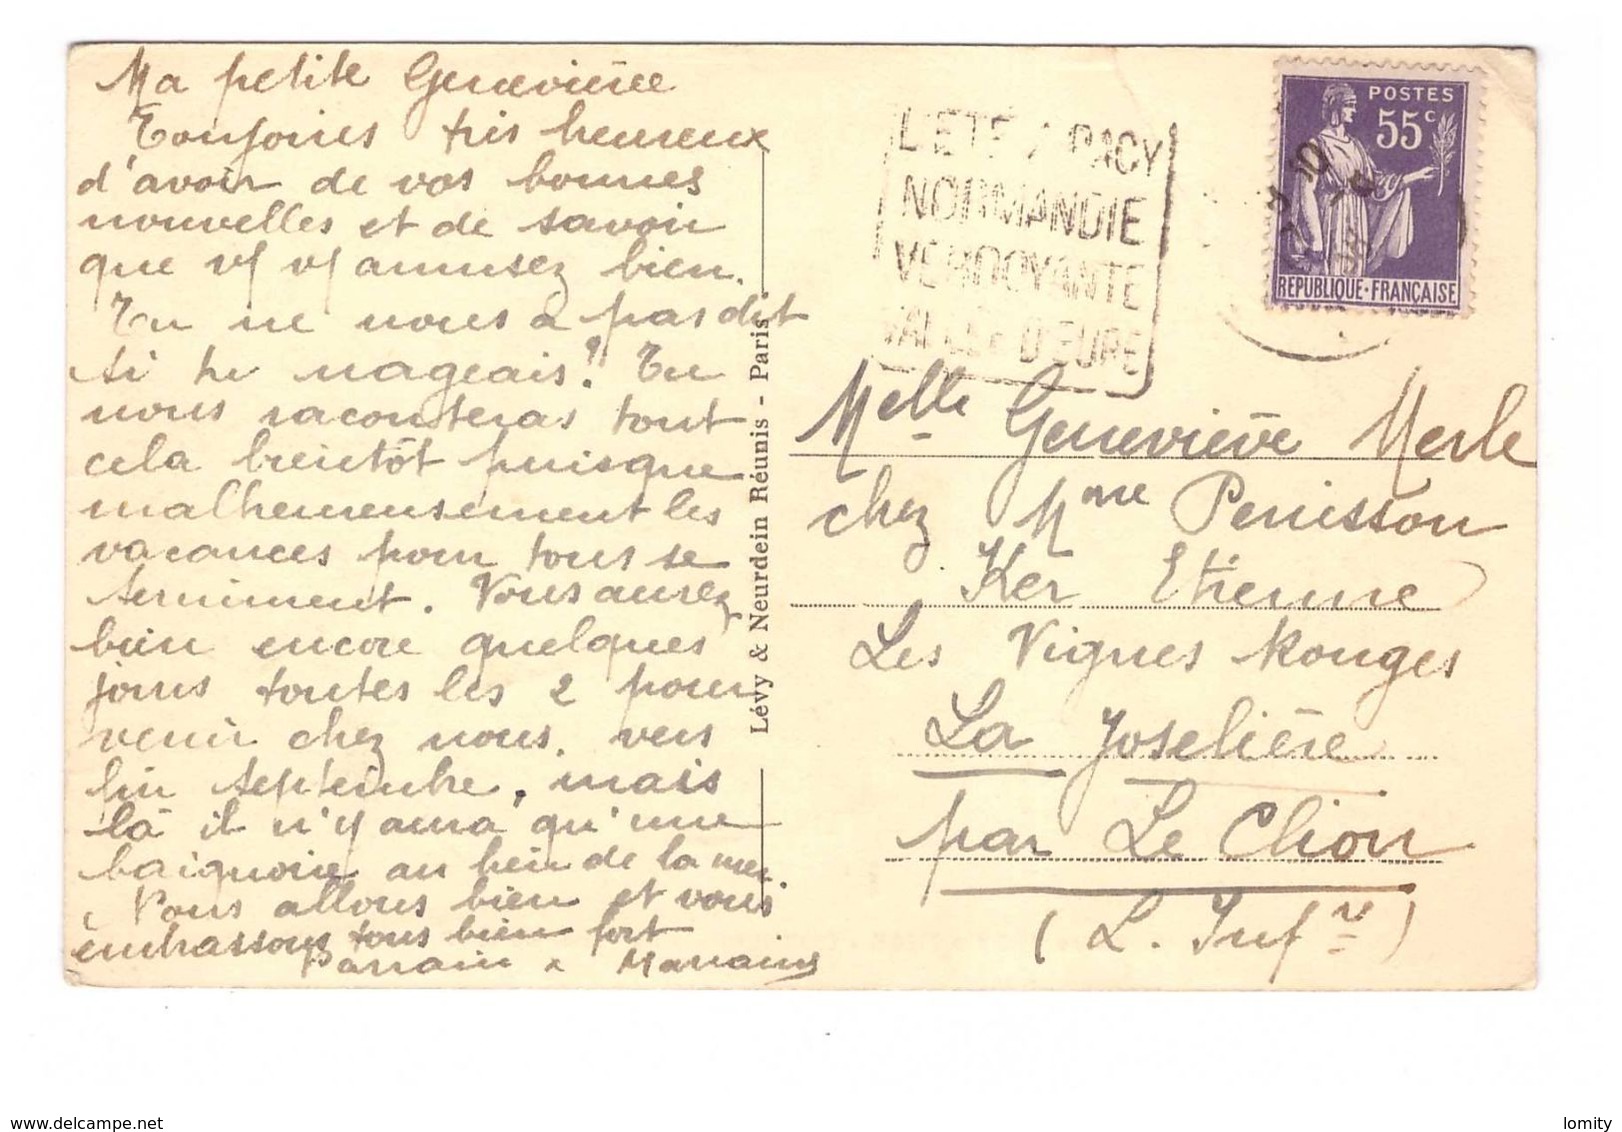 Ma petite Geneviève
Toujours très heureux
d'avoir de vos bonnes
nouvelles et de savoir
que v/ v/ amusez bien.
Tu ne nous a pas dit
si tu nageais? Tu
nous raconteras tout
cela bientôt puisque
malheureusement les
vacances pour tous se
terminent. Vous aurez
bien encore quelques
jours toutes les 2 pour
venir chez nous, vers
fin septembre, mais
là il n'y aura qu'une
baignoire au lieu de la mer
Nous allons bien et vous
embrassons tous bien fort
Parrain & Marraine
Lévy & Neurdein Réunis - Paris
L'ÉTÉ A PACY
NORMANDIE
VERDOYANTE
VALLÉE D'EURE
POSTES
55c
RÉPUBLIQUE-FRANÇAISE
Melle Geneviève Merle
chez Mme Penisson
Ker Etienne
Les Vignes Rouges
La Joselière
par Le Clion
(L. Infre)
www.delcampe.net
lomity